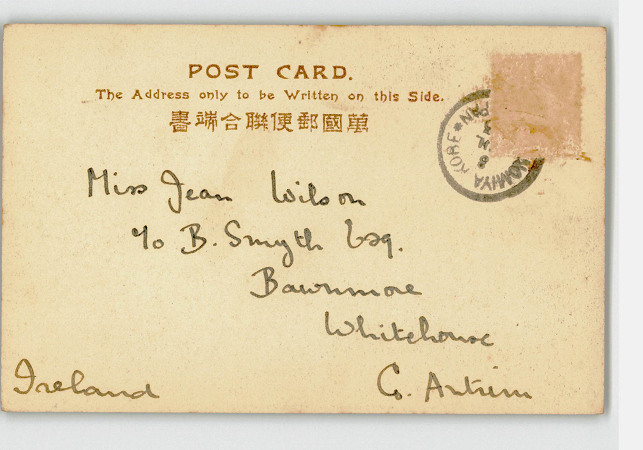 POST CARD.
The Address only to be Written on this Side.
書端合聯便郵國萬
Miss Jean Wilson
c/o B. Smyth Esq.
Bawnmore
Whitehouse
Ireland Co. Antrim
KOBE